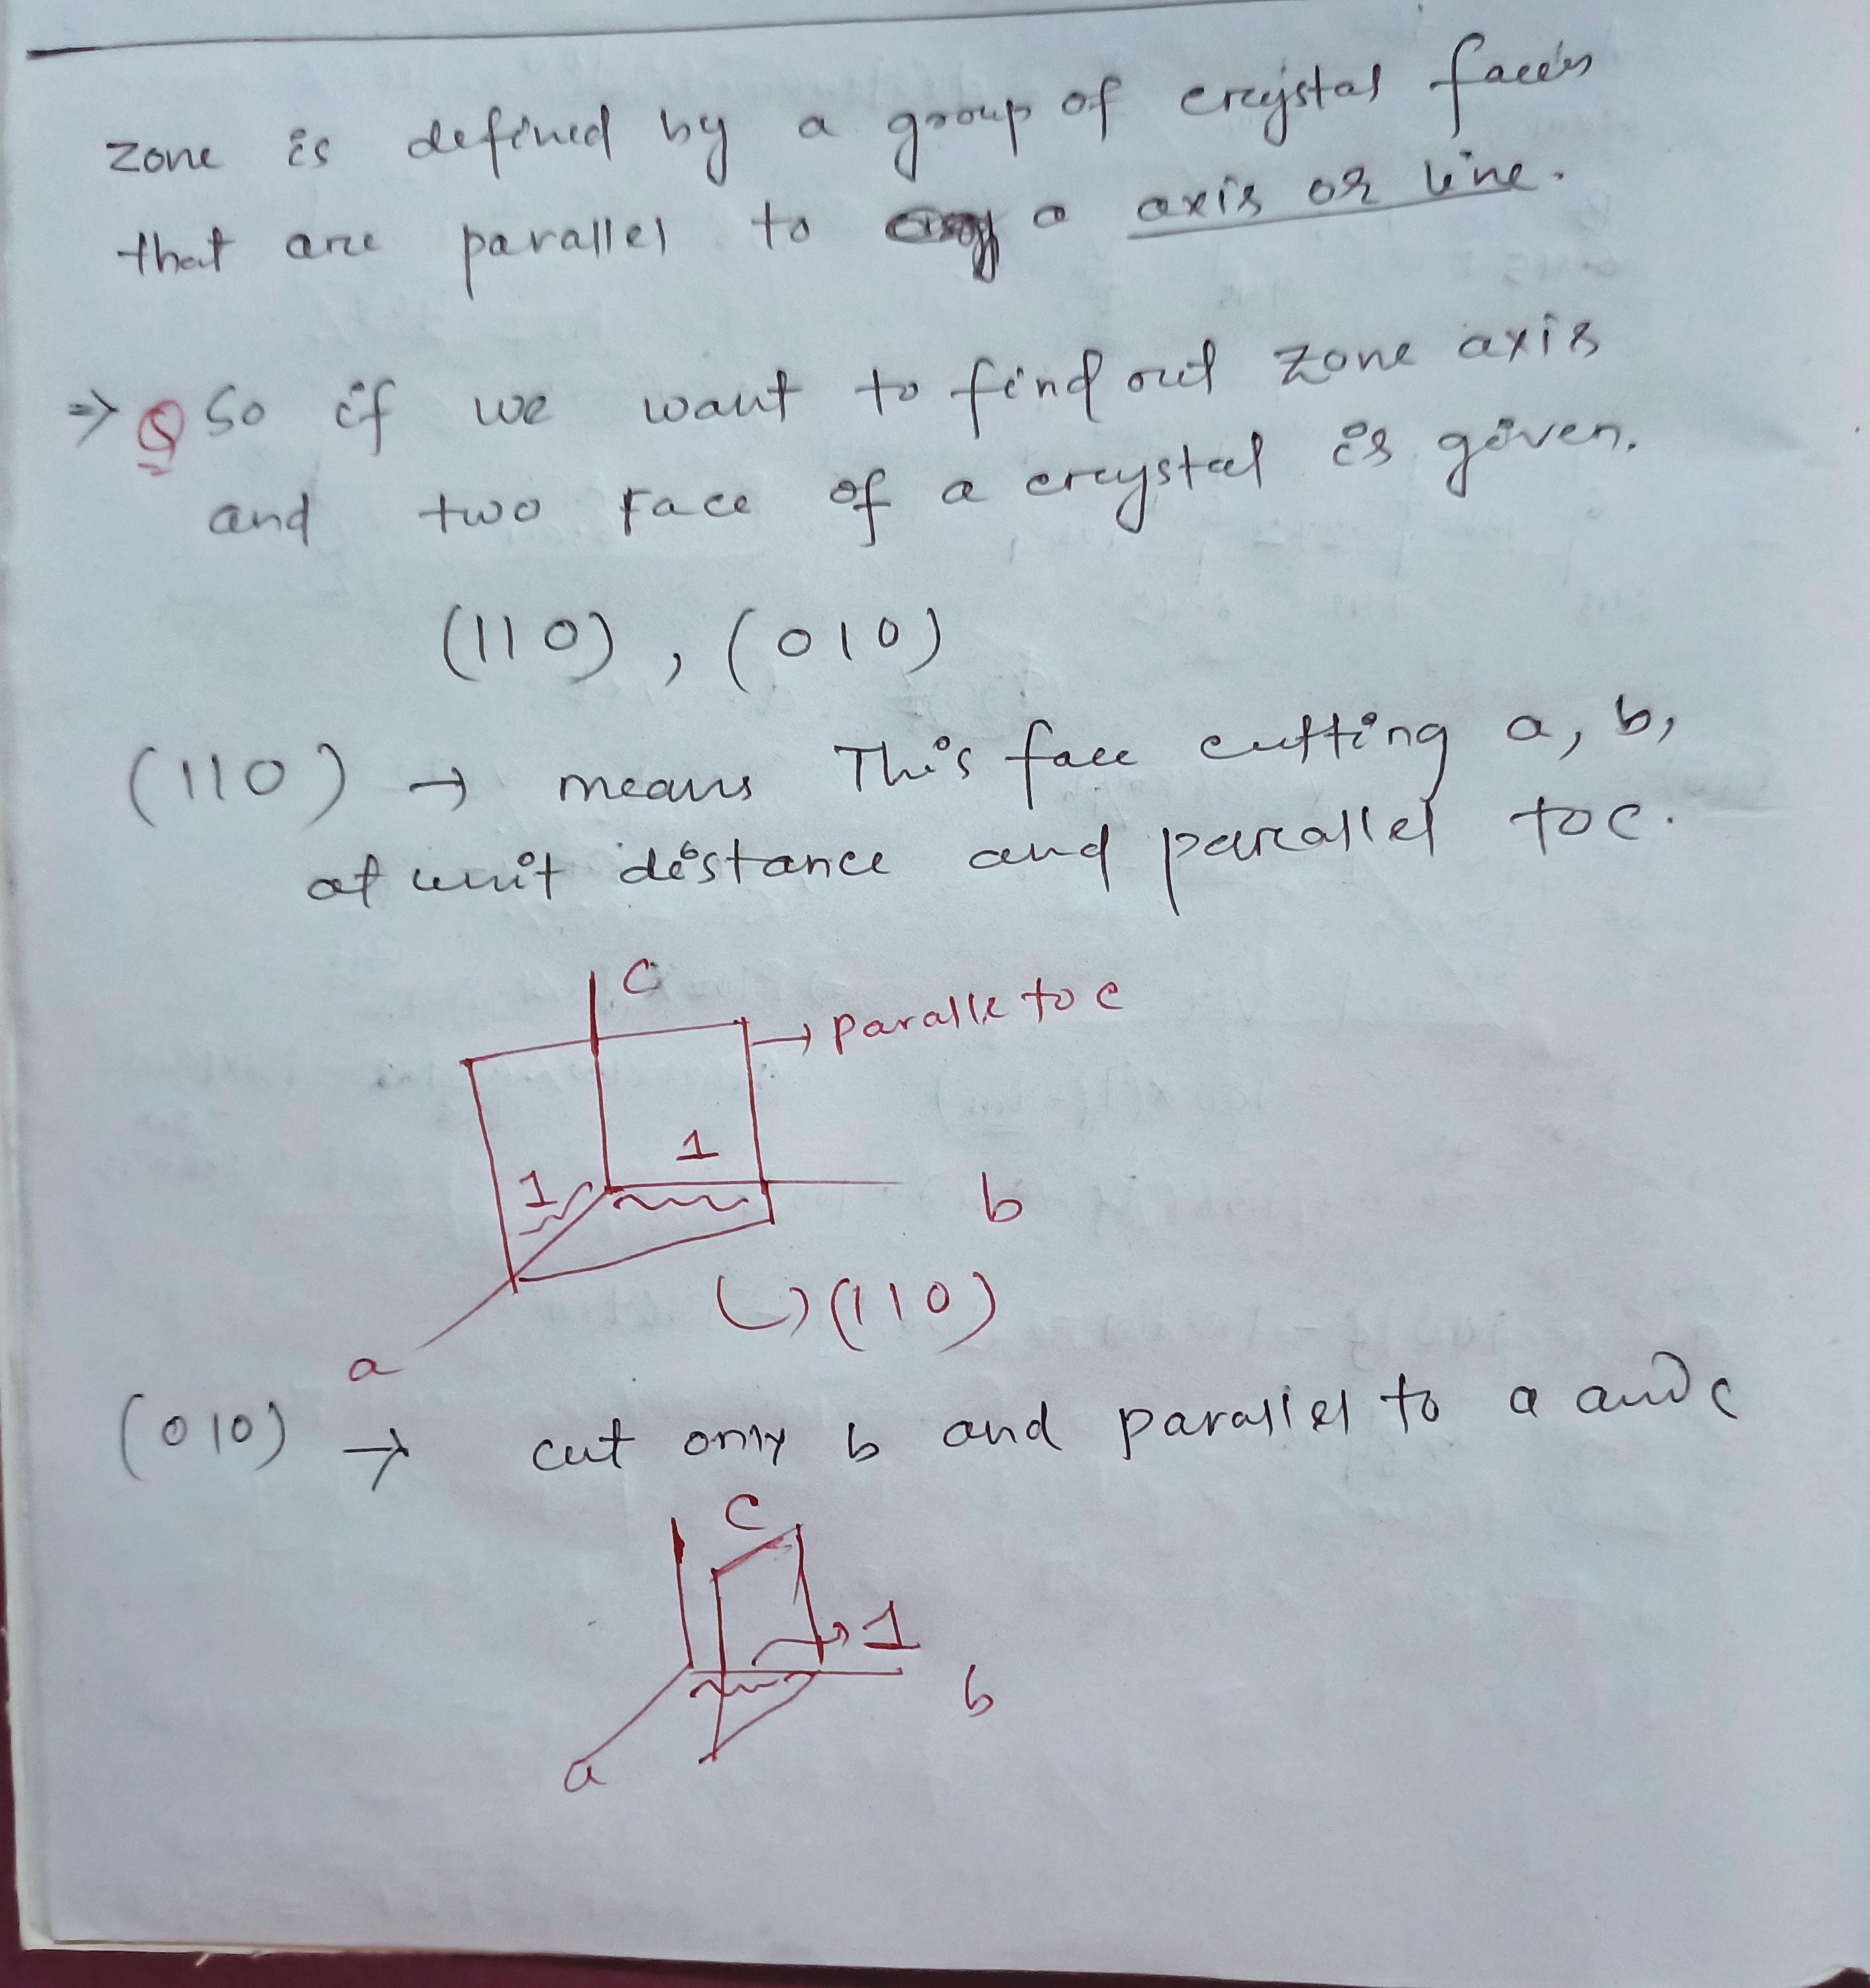 zone is defined by a group of crystal faces
that are parallel to a axis or line.
⇒ Q So if we want to find out zone axis
and two face of a crystal is given.
(110), (010)
(110) → means This face cutting a, b,
at unit distance and parallel to c.
C
→ Paralle to c
1
1
b
(110)
a
(010) → cut only b and parallel to a and c
C
→ 1
b
a